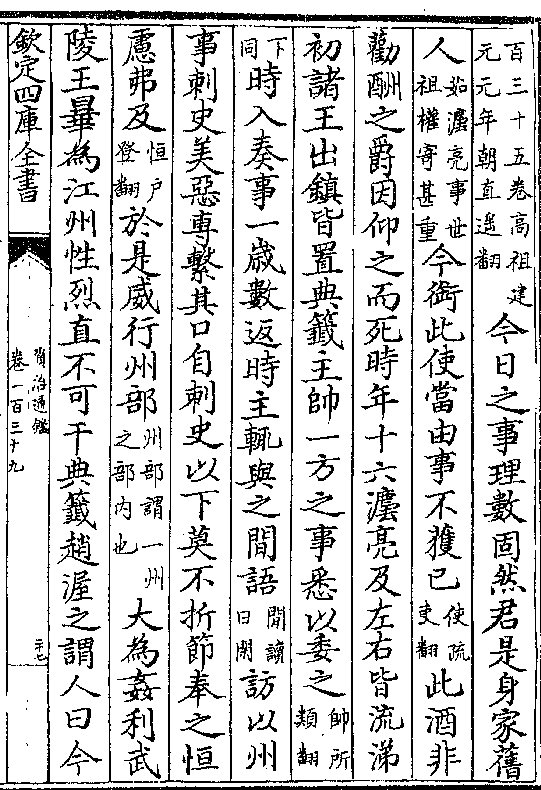 百三十五卷高祖建
元元年朝直遥翻今日之事理數固然君是身家舊
人如灋亮事世祖權寄甚重今銜此使當由事不獲已使疏吏翻此酒非
勸酬之爵因仰之而死時年十六灋亮及左右皆流涕
初諸王出鎮皆置典籖主帥一方之事悉以委之帥所類翻
下同時入奏事一歳數返時主輒與之閒語閒讀曰閑訪以州
事刺史美惡專繫其口自刺史以下莫不折節奉之恒
慮弗及恒戶登翻於是威行州部州部謂一州之部内也大為姦利武
陵王曅為江州性烈直不可干典籖趙渥之謂人曰今
欽定四庫全書
資治通鑑
卷一百三十九